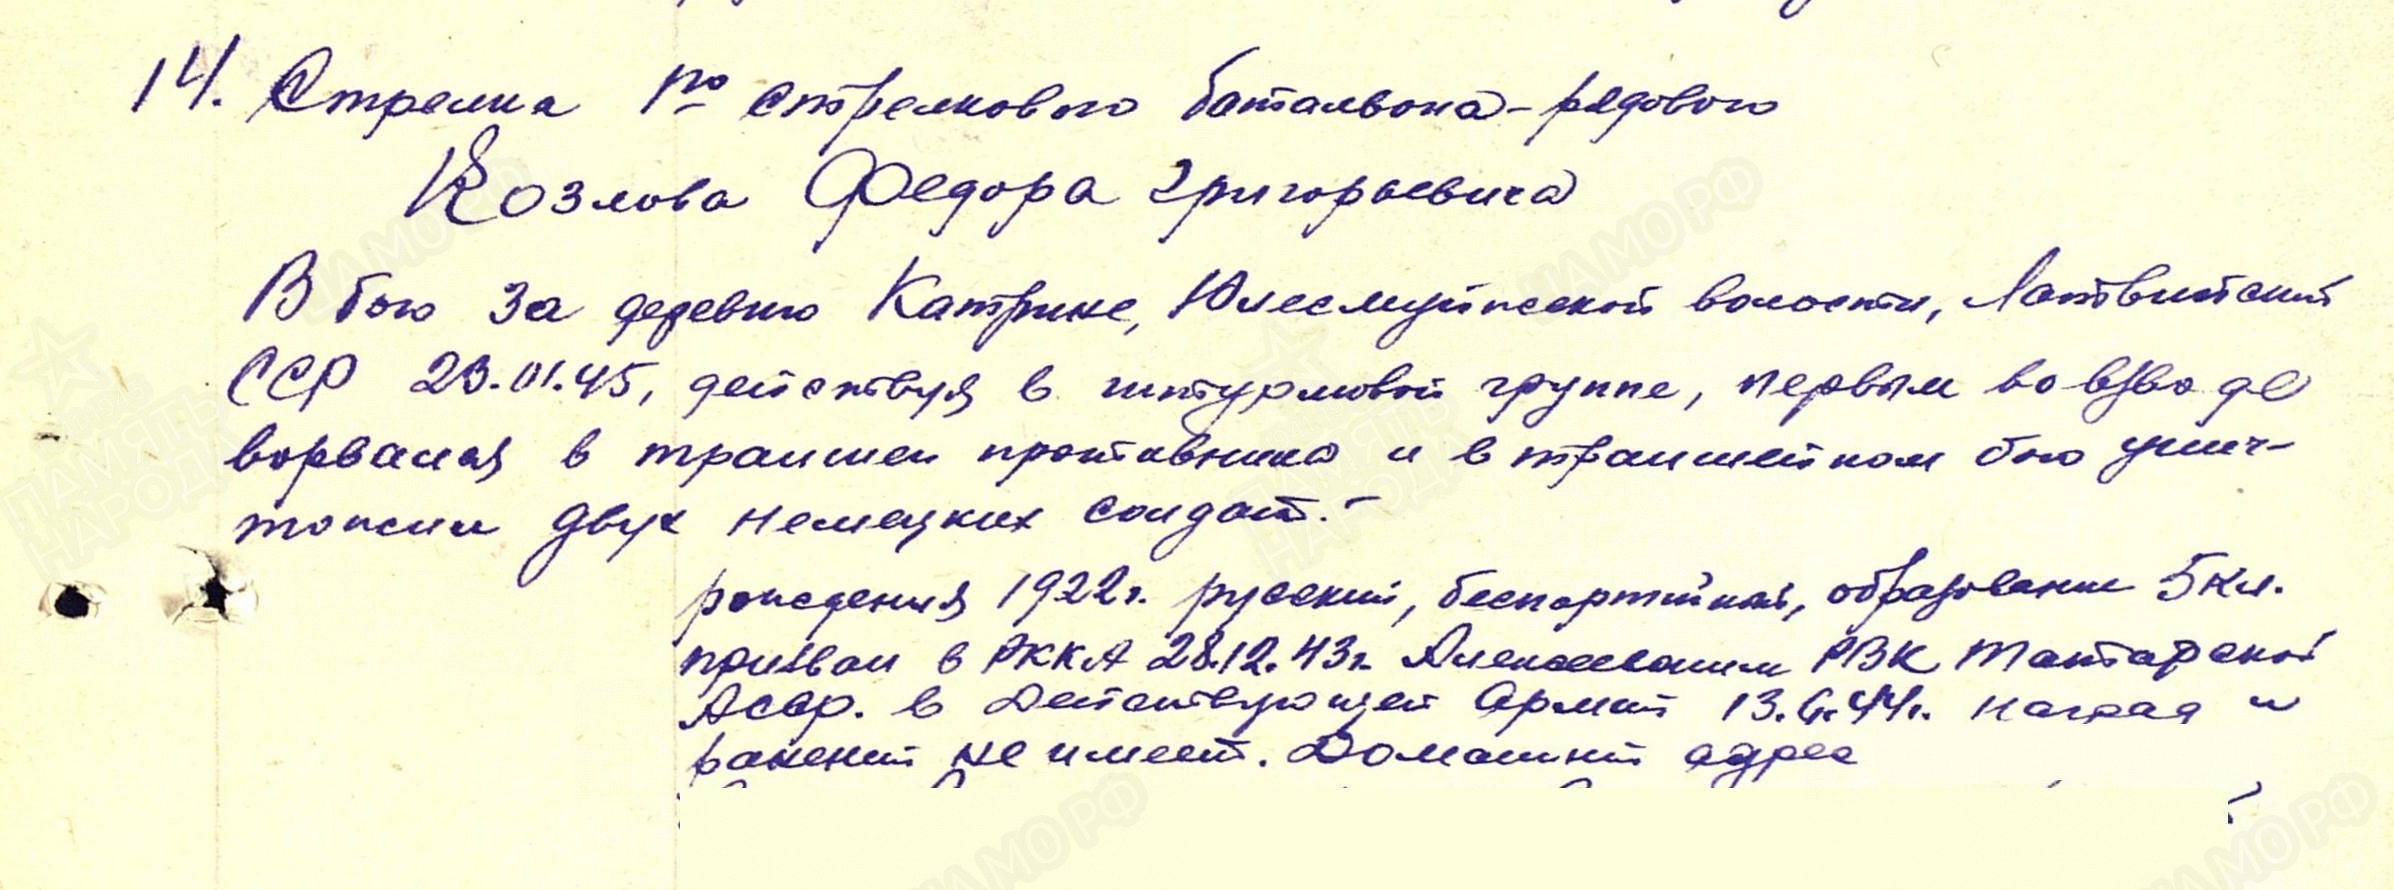 14. Стрелка 1го стрелкового батальона - рядового
Козлова Федора Григорьевича
В бою за деревню Катрине, волости, Латвийской
ССР 23.01.45, действуя в штурмовой группе, первым во взводе
ворвался в траншеи противника и в траншейном бою унич-
тожил двух немецких солдат. -
рождения 1922г. русский, беспартийный, образование 5 кл.
призван в РККА 28.12.43г. РВК Татарской
АССР. в Действующей Армии 13.6.44г. наград и
ранений не имеет. Домашний адрес
ПАМЯТЬ
НАРОДА
ЦАМО РФ